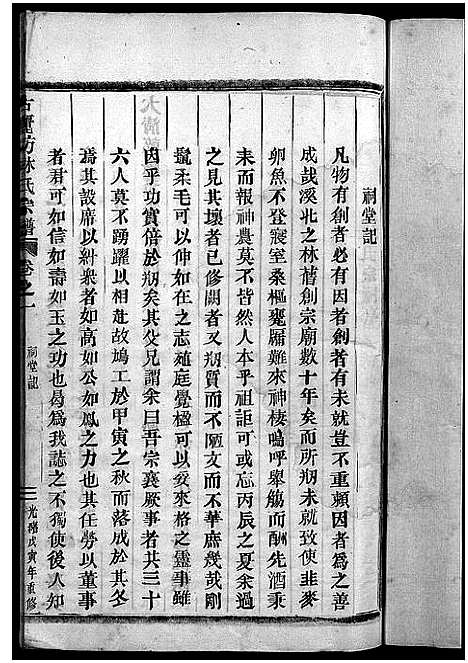 祠堂記
凡物有創者必有因者創者有未就豈不重頼因者爲之善
成哉溪北之林舊創宗廟數十年矣而所刱未就致使韭麥
卵魚不登寢室桑樞甕牖難來神棲嗚呼舉觴而酬先酒秉
耒而報神農莫不皆然人本乎祖詎可或忘丙辰之夏余過
之見其壞者已修闕者又刱質而不陋文而不華庶幾哉剛
鬣柔毛可伸如在之志殖庭覺楹可以妥來格之靈事雖
因乎功實倍於刱矣其父兄謂余曰吾宗襄厥事者共三十
六人莫不踴躍以相赴故鳩工於甲寅之秋而落成於其冬
焉其設席以糾衆者如高如公如鳳之力也其任勞以董事
者君可如信如壽如玉之功也曷爲我誌之不獨使後人知
林氏宗譜
卷之一
祠堂記
一
光緒戊寅年重修